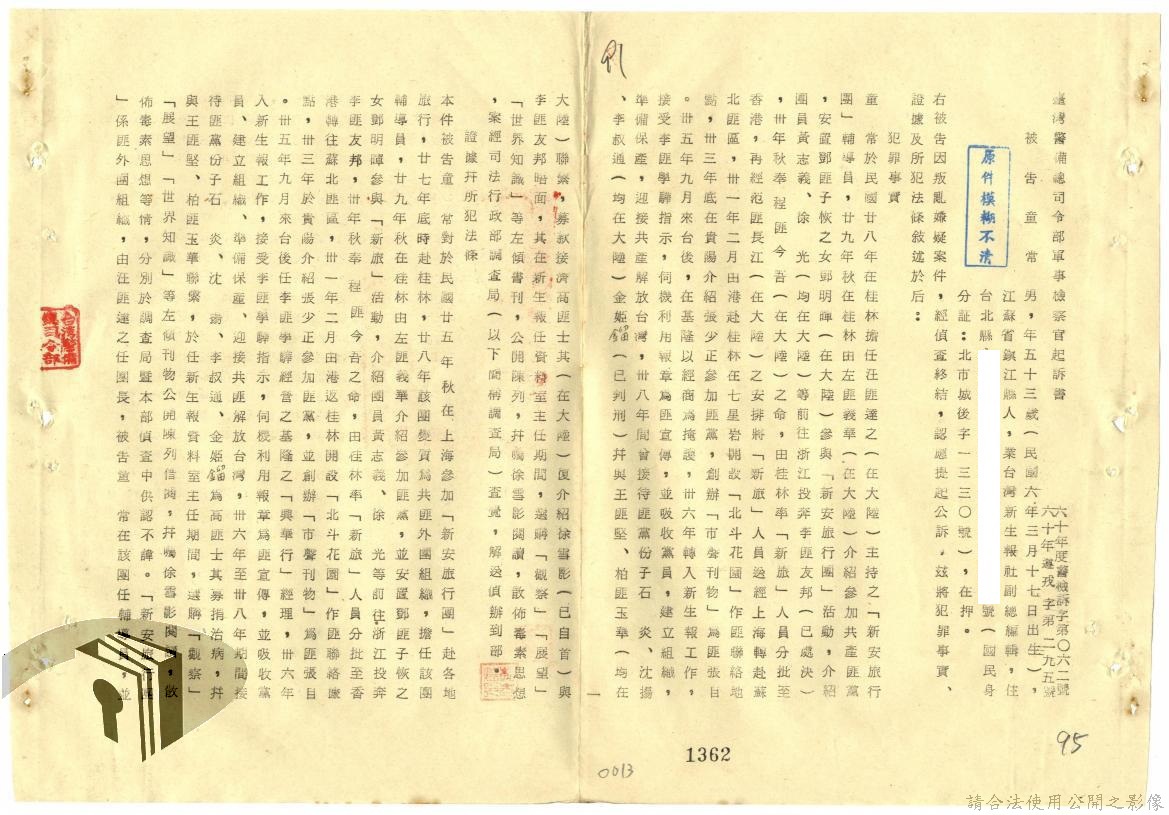 臺灣警備總司令部軍事檢察官起訴書
六十年度警檢訴字第〇六二號
六十年遵戎字第二九五號
被告童常 男，年五十三歲（民國六年三月十七日出生），
江蘇省鎮江縣人，業台灣新生報社副總編輯，住
台北縣 號（國民身
分証：北市城後字一三三〇號），在押。
右被告因叛亂嫌疑案件，經偵查終結，認應提起公訴，茲將犯罪事實、
證據及所犯法條敘述於后：
犯罪事實
童 常於民國廿八年在桂林擔任汪匪達之（在大陸）主持之「新安旅行
團」輔導員，廿九年秋在桂林由左匪義華（在大陸）介紹參加共產匪黨
，安置鄧匪子恢之女鄧明暉（在大陸）參與「新安旅行團」活動，介紹
團員黃志義、徐 光（均在大陸）等前往浙江投奔李匪友邦（已處決）
，卅年秋奉程匪今吾（在大陸）之命，由桂林率「新旅」人員分批至
香港，再經范匪長江（在大陸）之安排將「新旅」人員送經上海轉赴蘇
北匪區，卅一年二月由港赴桂林在七星岩開設「北斗花園」作匪聯絡地
點，卅三年底在貴陽介紹張少正參加匪黨，創辦「市聲刊物」為匪張目
。卅五年九月來台後，在基隆以經商為掩護，卅六年轉入新生報工作，
接受李匪學驊指示，伺機利用報章為匪宣傳，並吸收黨員，建立組織，
準備保產，迎接共產解放台灣，卅八年間曾接待匪黨份子石 炎、沈揚
、李叔通（均在大陸）金姬鎦（已判刑）幷與王匪堅、柏匪玉華（均在
大陸）聯繫，募款接濟高匪士其（在大陸）復介紹徐雪影（已自首）與
李匪友邦晤面，其在新生報任資料室主任期間，選購「觀察」「展望」
「世界知識」等左傾書刊，公開陳列，幷囑徐雪影閱讀，散佈毒素思想
，案經司法行政部調查局（以下簡稱調查局）查覺，解送偵辦到部。
證據幷所犯法條
本件被告童 常對於民國廿五年秋在上海參加「新安旅行團」赴各地
旅行，廿七年底時赴桂林，廿八年該團變質為共匪外圍組織，擔任該團
輔導員，廿九年秋在桂林由左匪義華介紹參加匪黨，並安置鄧匪子恢之
女鄧明暉參與「新旅」活動，介紹團員黃志義、徐 光等前往浙江投奔
李匪友邦，卅年秋奉程匪今吾之命，由桂林率「新旅」人員分批至香
港轉往蘇北匪區，卅一年二月由港返桂林開設「北斗花園」作匪聯絡據
點，卅三年於貴陽介紹張少正參加匪黨，並創辦「市聲刊物」為匪張目
。卅五年九月來台後任李匪學驊經營之基隆之「興華行」經理，卅六年
入新生報工作，接受李匪學驊指示，伺機利用報章為匪宣傳，並吸收黨
員、建立組織、準備保產、迎接共匪解放台灣，卅六年至卅八年期間接
待匪黨份子石 炎、沈 揚、李叔通、金姬鎦為高匪士其募捐治病，幷
與王匪堅、柏匪玉華聯繫，於任新生報資料室主任期間，選購「觀察」
「展望」「世界知識」等左傾刊物公開陳列借閱，幷囑徐雪影閱讀，散
佈毒素思想等情，分別於調查局暨本部偵查中供認不諱。「新安旅行團
」係匪外圍組織，由汪匪達之任團長，被告童 常在該團任輔導員，並
一
原件模糊不清
1362
0013
95
91
請合法使用公開之影像